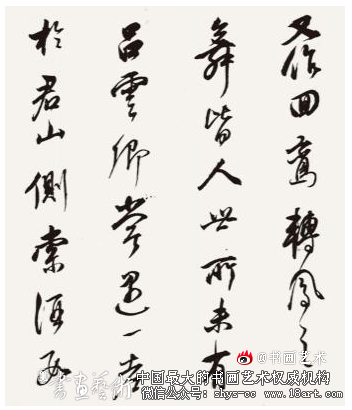 又作回鸞轉鳳之
舞皆人世所未有
呂雲卿嘗遇一老
於君山側索酒數
@书画艺术
書畫藝術
中国最大的书画艺术权威机构
微信公众号：shys--cc www.18art.com